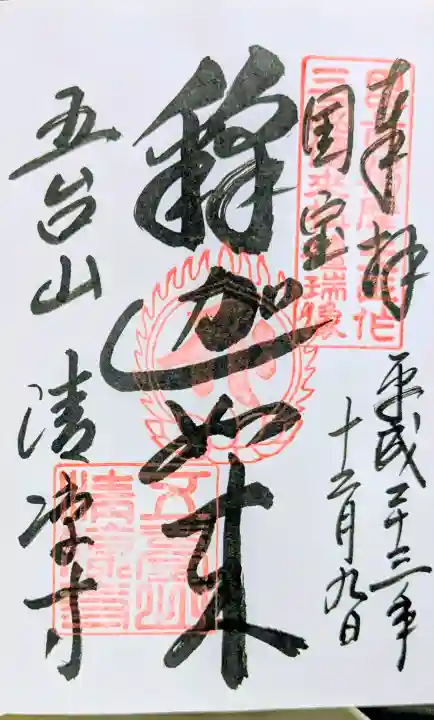 奉拝
平成二十三年
十二月九日
国宝
釋迦如来
五台山 清凉寺
五臺山
清凉寺